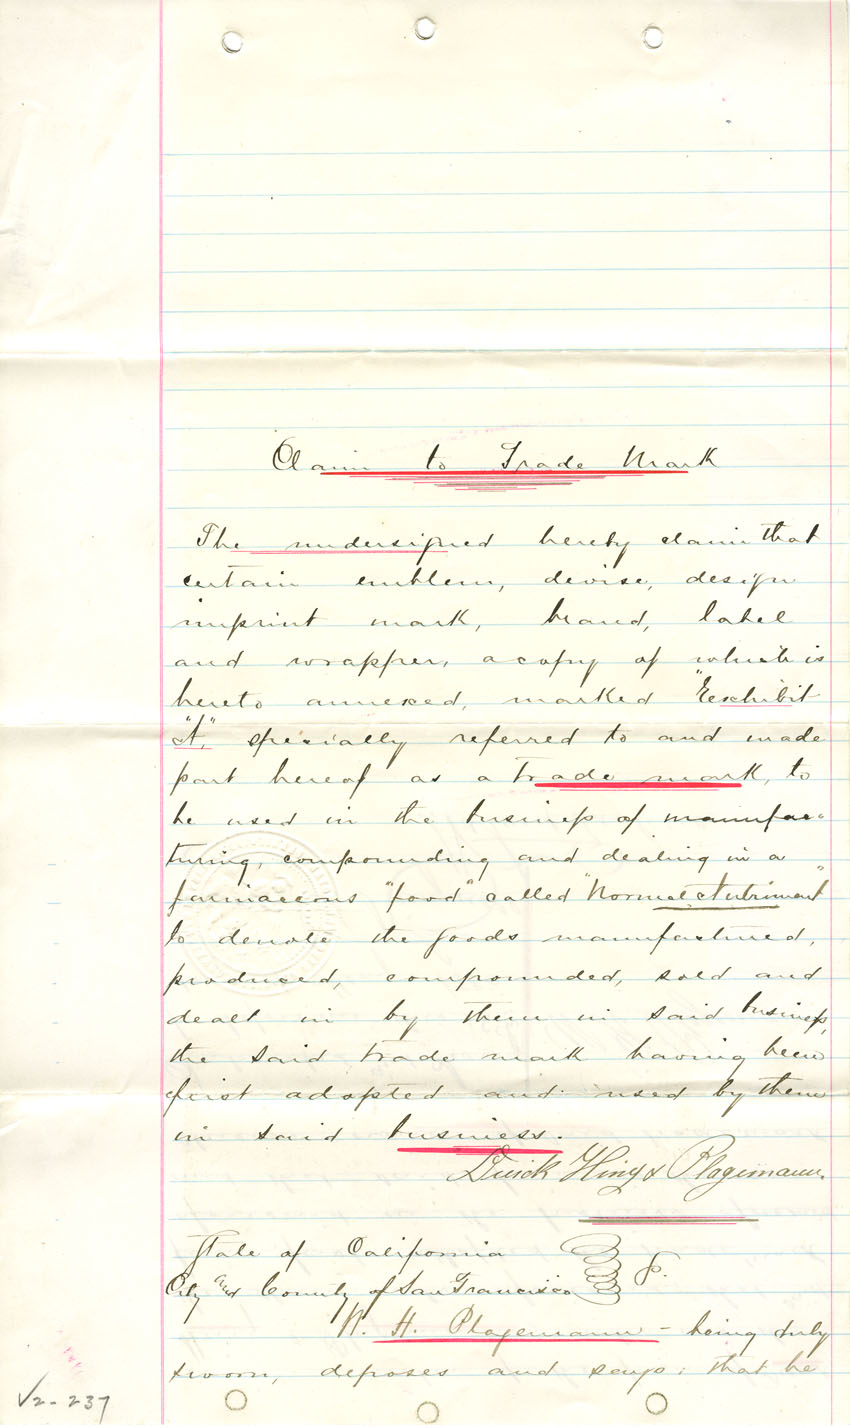 Claim to Trade Mark
The undersigned hereby claim that
certain emblem, devise, design
imprint mark, brand, label
and wrapper, a copy of which is
hereto annexed, marked "Exhibit
"A," specially referred to and made
part hereof as a trade mark, to
be used in the business of manufac-
turing, compounding and dealing in a
farinaceous "food" called "Normal Nutriment"
to denote the goods manufactured,
produced, compounded, sold and
dealt in by them in said business,
the said trade mark having been
first adopted and used by them
in said business.
& Plagemann.
State of California
City and County of San Francisco
H. Plagemann - being duly
sworn, deposes and says: that he
V2-237